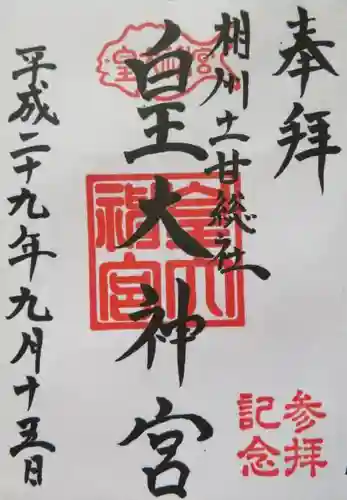 奉拝
相州土甘総社
皇大神宮
平成二十九年九月十五日
皇大神宮
参拝
記念